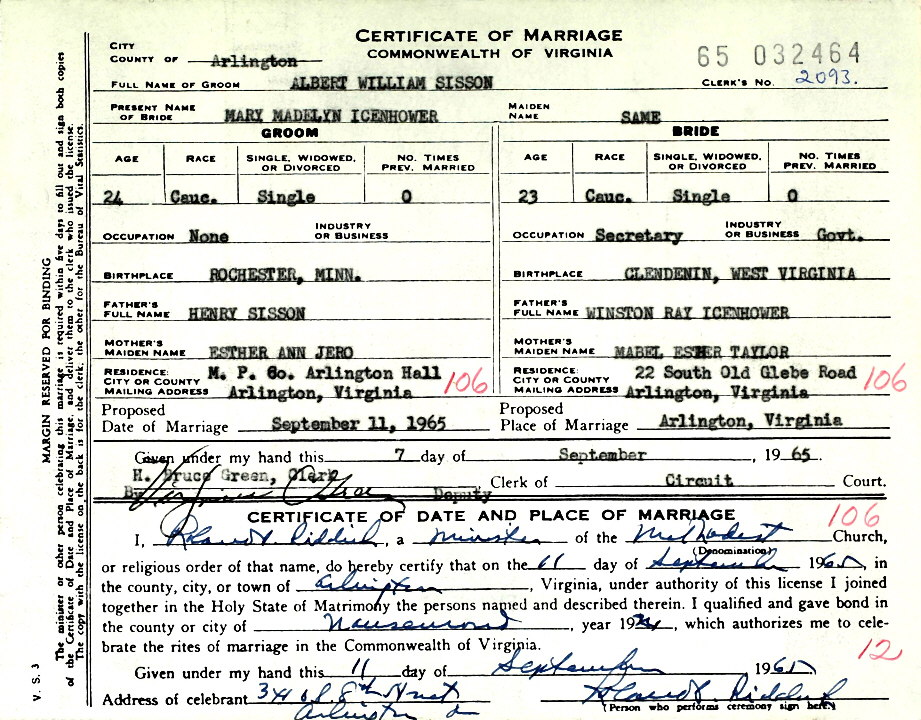 CERTIFICATE OF MARRIAGE
COMMONWEALTH OF VIRGINIA
65 032464
CITY
COUNTY OF Arlington
CLERK'S No. 2093.
FULL NAME OF GROOM ALBERT WILLIAM SISSON
PRESENT NAME OF BRIDE MARY MADELYN ICENHOWER MAIDEN NAME SAME
GROOM BRIDE
AGE RACE SINGLE, WIDOWED, OR DIVORCED NO. TIMES PREV. MARRIED AGE RACE SINGLE, WIDOWED, OR DIVORCED NO. TIMES PREV. MARRIED
24 Cauc. Single 0 23 Cauc. Single 0
OCCUPATION None INDUSTRY OR BUSINESS OCCUPATION Secretary INDUSTRY OR BUSINESS Govt.
BIRTHPLACE ROCHESTER, MINN. BIRTHPLACE CLENDENIN, WEST VIRGINIA
FATHER'S FULL NAME HENRY SISSON FATHER'S FULL NAME WINSTON RAY ICENHOWER
MOTHER'S MAIDEN NAME ESTHER ANN JERO MOTHER'S MAIDEN NAME MABEL ESTHER TAYLOR
RESIDENCE: CITY OR COUNTY MAILING ADDRESS M. P. Co. Arlington Hall Arlington, Virginia 106 RESIDENCE: CITY OR COUNTY MAILING ADDRESS 22 South Old Glebe Road Arlington, Virginia 106
Proposed Date of Marriage September 11, 1965 Proposed Place of Marriage Arlington, Virginia
Given under my hand this 7 day of September, 1965.
H. Bruce Green, Clerk
By Deputy Clerk of Circuit Court.
CERTIFICATE OF DATE AND PLACE OF MARRIAGE 106
I, Roland Riddick, a Minister of the Methodist Church,
(Denomination)
or religious order of that name, do hereby certify that on the 11 day of September 1965, in
the county, city, or town of Arlington, Virginia, under authority of this license I joined
together in the Holy State of Matrimony the persons named and described therein. I qualified and gave bond in
the county or city of Nansemond, year 19, which authorizes me to cele-
brate the rites of marriage in the Commonwealth of Virginia. 12
Given under my hand this 11 day of September 1965
Address of celebrant Roland Riddick
Arlington (Person who performs ceremony sign here.)
MARGIN RESERVED FOR BINDING
The minister or other person celebrating this marriage is required within five days to fill out and sign both copies
of the Certificate of Date and Place of Marriage, and deliver them to the clerk who issued the license.
The copy with the license on the back is for the clerk, the other for the Bureau of Vital Statistics.
V. S. 3